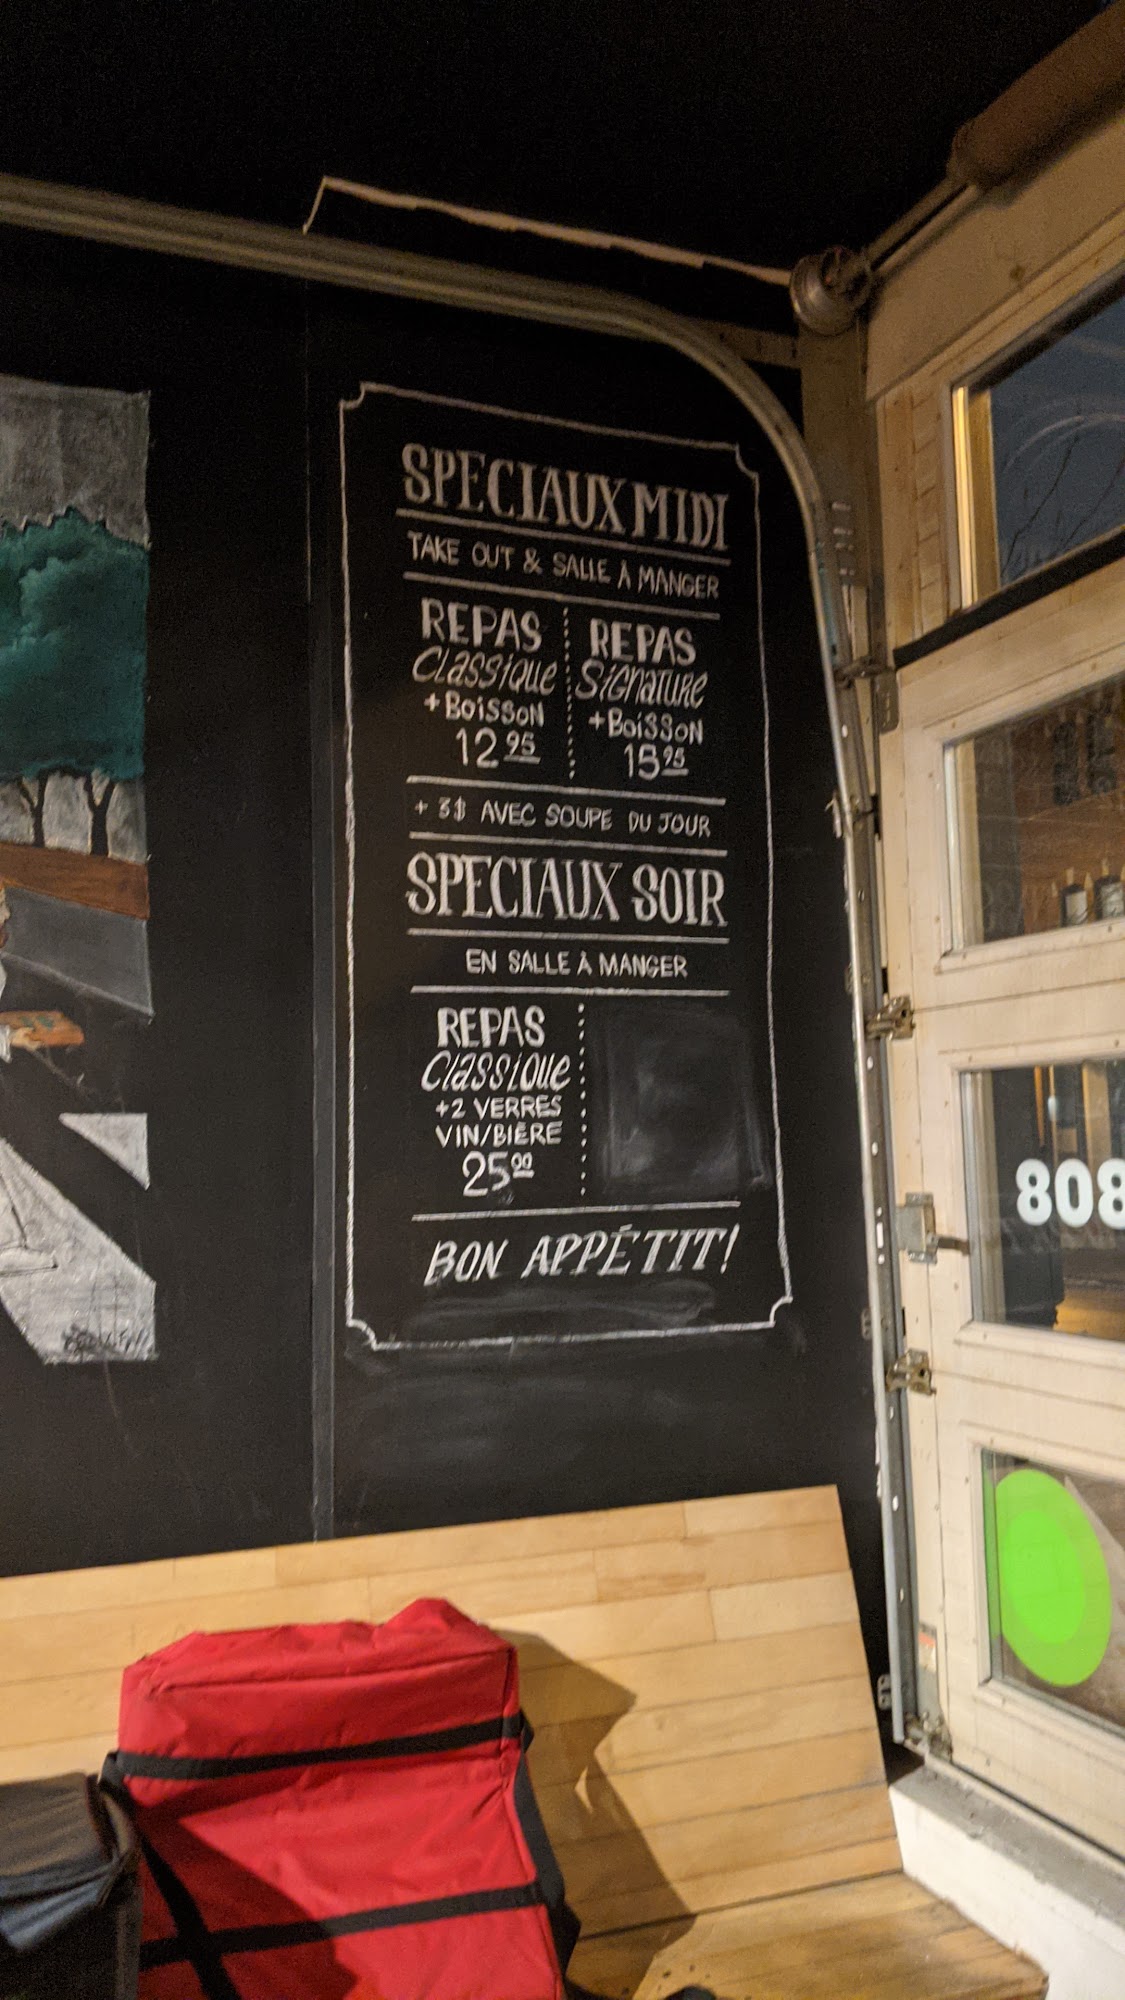 SPECIAUX MIDI
TAKE OUT & SALLE À MANGER
REPAS
Classique
+ BOISSON
12 95
REPAS
Signature
+ BOISSON
15 95
+ 3$ AVEC SOUPE DU JOUR
SPECIAUX SOIR
EN SALLE À MANGER
REPAS
Classique
+2 VERRES
VIN/BIÈRE
25 00
BON APPÉTIT!
808